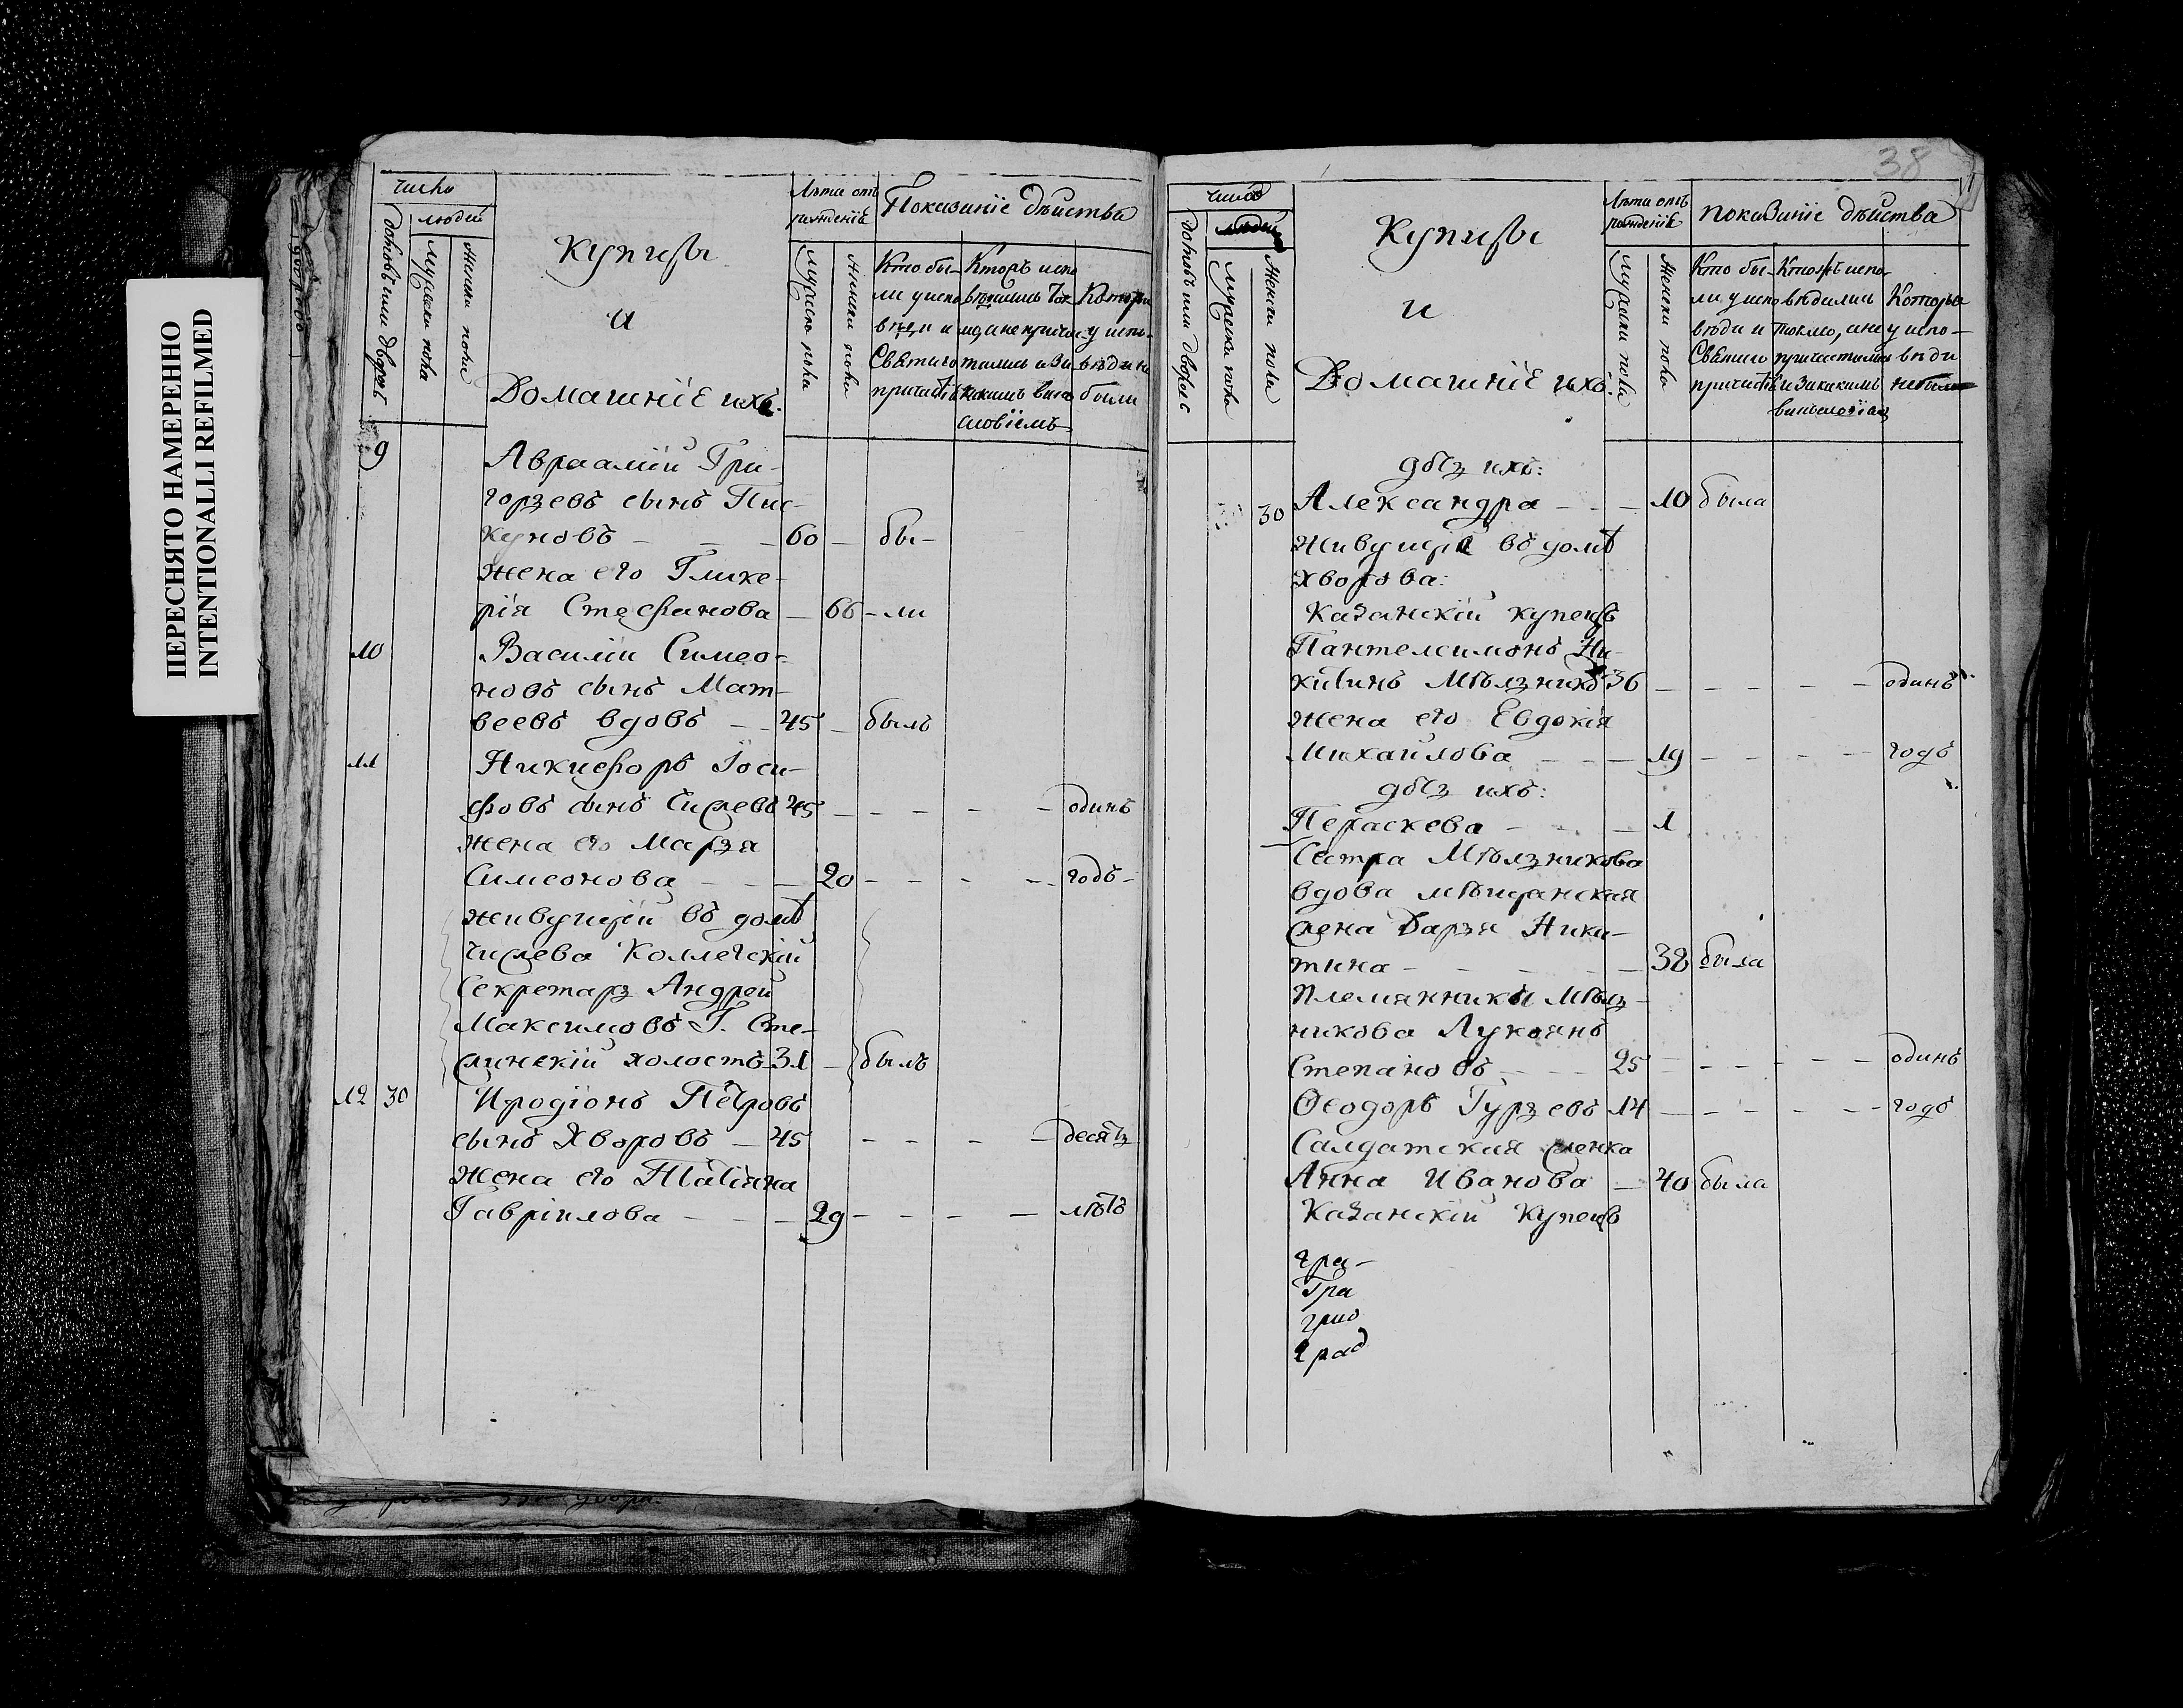 ПЕРЕСНЯТО НАМЕРЕННО
INTENTIONALLI REFILMED
число
людей
домовъ или дворовъ
мужеска пола
женска пола
Купцы
и
Домашніе ихъ.
Лѣта отъ
рожденія
мужеска пола
женска пола
Показаніе дѣйства
Кто бы-
ли у испо
вѣди и
Святаго
причастія
Кто испо
вѣдались то
мо, а не прича
тились и за
какимъ вино
словіемъ
Которы
у испо-
вѣди не
были
9
Авраамій Гри-
горьевъ сынъ Пис-
куновъ 60 бы-
жена его Глике-
рія Стефанова 66 - ли
10 Василій Симео-
новъ сынъ Мат-
веевъ вдовъ 45 былъ
11 Никифоръ Іоси-
фовъ сынъ Чижевъ 45 одинъ
жена его Марья
Симеонова 20 годъ
живущій въ домѣ
Чижева Коллежскій
Секретарь Андрей
Максимовъ Г. Сте-
жинскій холостъ 31 былъ
12 30 Иродіонъ Петровъ
сынъ Хворовъ 45 десять
жена его Татіана
Гавріилова 29 лѣтъ
38
число
людей
домовъ или дворовъ
мужеска пола
женска пола
Купцы
и
Домашніе ихъ.
Лѣта отъ
рожденія
мужеска пола
женска пола
показаніе дѣйства
Кто бы-
ли у испо
вѣди и
Святаго
причастія
Кто испо-
вѣдались
токмо, а не
причастились
и за какимъ
винословіемъ
Которые
у испо-
вѣди
не были
дѣть ихъ:
30 Александра 10 была
живущія въ домѣ
Хворова:
Казанскій купецъ
Пантелеимонъ Ни-
китинъ Мѣльниковъ 36 одинъ
жена его Евдокія
Михайлова 19 годъ
дѣть ихъ:
Пераскева 1
Сестра Мѣльникова
вдова мѣщанская
жена Дарья Ники-
тина 38 была
Племянники Мѣль-
никова Лукоянъ
Степановъ 25 одинъ
Ѳеодоръ Гурьевъ 14 годъ
Салдатская женка
Анна Иванова 40 была
Казанскій Купецъ
гра-
Гра
град